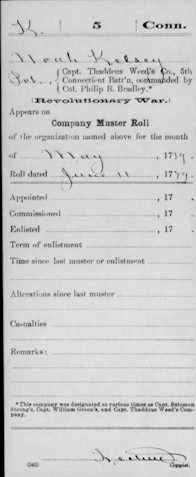 K. 5 Conn.
Noah Kelsey
Pvt., Capt. Thaddeus Weed's Co., 5th
Connecticut Batt'n, commanded by
Col. Philip B. Bradley.*
(Revolutionary War.)
Appears on
Company Muster Roll
of the organization named above for the month
of May, 1779.
Roll dated June 11, 1779.
Appointed , 17 .
Commissioned , 17 .
Enlisted , 17 .
Term of enlistment
Time since last muster or enlistment
Alterations since last muster
Casualties
Remarks:
*This company was designated at various times as Capt. Solomon
Strong's, Capt. William Green's, and Capt. Thaddeus Weed's Com-
pany.
(543) Copyist.